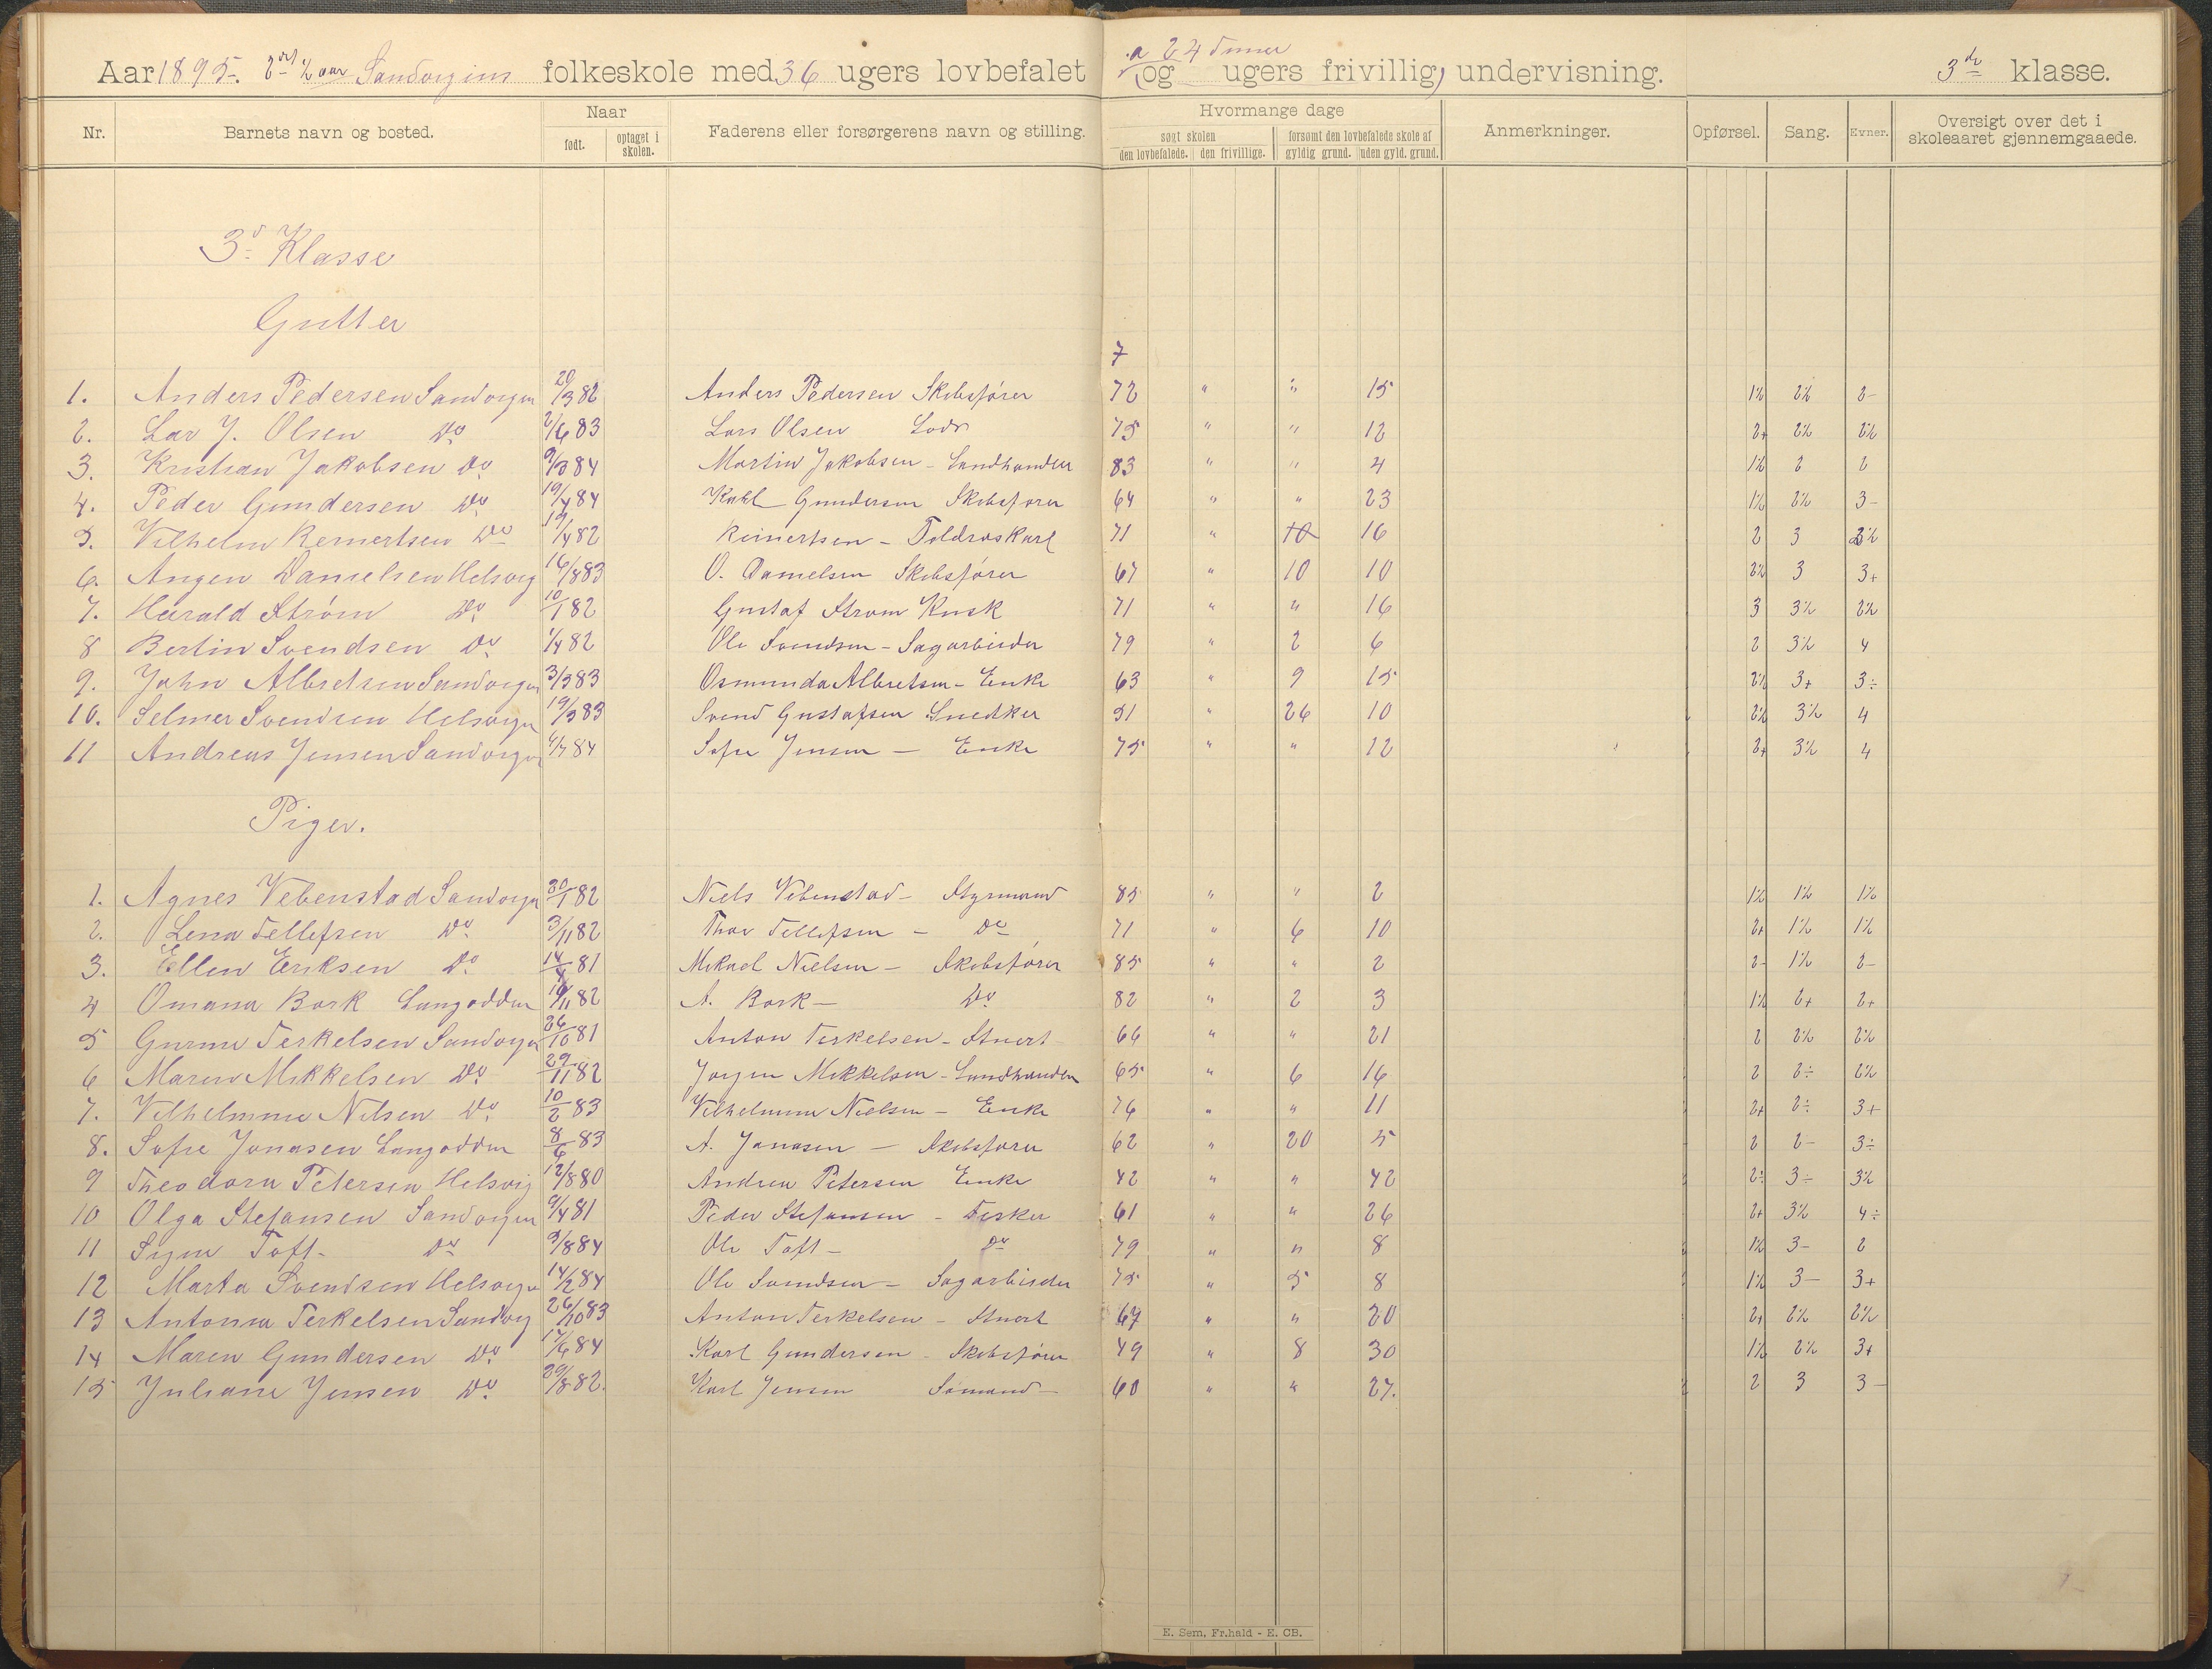 Aar 1895. 2det ½ aar Sandvigens folkeskole med 36 ugers lovbefalet (og ugers frivillig) undervisning. 3de klasse.
a 24 timer
Nr. Barnets navn og bosted. Naar Faderens eller forsørgerens navn og stilling. Hvormange dage Anmerkninger. Opførsel. Sang. Evner. Oversigt over det i skoleaaret gjennemgaaede.
født. optaget i skolen. søgt skolen forsømt den lovbefalede skole af
den lovbefalede. den frivillige. gyldig grund. uden gyld. grund.
3d Klasse
Gutter
7
1. Anders Pedersen Sandvigen 20/3 82 Anders Pedersen Skibsfører 72 " " 15 1½ 2½ 2-
2. Lar J. Olsen Do 2/6 83 Lars Olsen Lods 75 " " 12 2+ 2½ 2½
3. Kristian Jakobsen Do 9/3 84 Martin Jakobsen - Landhandler 83 " " 4 1½ 2 2
4. Peder Gundersen Do 19/4 84 Karl Gundersen Skibsfører 64 " " 23 1½ 2½ 3-
5. Vilhelm Reinertsen Do 19/4 82 Reinertsen - Toldroskarl 71 " 10 16 2 3 3½
6. Angen Danielsen Helsvig 16/8 83 O. Danielsen Skibsfører 67 " 10 10 2½ 3 3+
7. Harald Strøm Do 10/1 82 Gustaf Strøm Kusk 71 " " 16 3 3½ 2½
8 Bertin Svendsen Do 1/4 82 Ole Svendsen - Sagarbeider 79 " 2 6 2 3½ 4
9. John Albretsen Sandvigen 3/3 83 Osmunda Albretsen - Enke 63 " 9 15 2½ 3+ 3÷
10. Selmer Svendsen Helsvigen 19/3 83 Svend Gustafsen Snedker 51 " 26 10 2½ 3½ 4
11 Andreas Jensen Sandvigen 4/7 84 Sofie Jensen - Enke 75 " " 12 2+ 3½ 4
Piger.
1. Agnes Vebenstad Sandvigen 30/1 82 Niels Vebenstad - Styrmand 85 " " 2 1½ 1½ 1½
2. Lena Tellefsen Do 3/11 82 Thor Tellefsen - Do 71 " 6 10 2+ 1½ 1½
3. Ellen Eriksen Do 14/4 81 Mikael Nielsen - Skibsfører 85 " " 2 2- 1½ 2-
4 Omana Bork Langodden 19/11 82 A. Bork - Do 82 " 2 3 1½ 2+ 2+
5 Gurine Terkelsen Sandvigen 26/10 81 Anton Terkelsen - Stuert 66 " " 21 2 2½ 2½
6 Maren Mikkelsen Do 29/11 82 Jørgen Mikkelsen - Landhandler 65 " 6 16 2 2÷ 2½
7. Vilhelmine Nilsen Do 10/2 83 Vilhelmine Nielsen - Enke 76 " " 11 2+ 2÷ 3+
8. Sofie Jonasen Langodden 8/6 83 A. Jonasen - Skibsfører 62 " 20 5 2 2- 3÷
9 Theodora Petersen Helsvig 12/8 80 Andrea Petersen Enke 42 " " 42 2÷ 3÷ 3½
10 Olga Stefansen Sandvigen 9/4 81 Peder Stefansen - Fisker 61 " " 26 2+ 3½ 4÷
11 Signe Toft - Do 3/8 84 Ole Toft - Do 79 " " 8 1½ 3- 2
12 Marta Svendsen Helsvigen 14/2 84 Ole Svendsen - Sagarbeider 75 " 5 8 1½ 3- 3+
13 Antonia Terkelsen Sandvig 26/10 83 Anton Terkelsen - Stuert 67 " " 20 2+ 2½ 2½
14 Maren Gundersen Do 17/6 84 Karl Gundersen - Skibsfører 49 " 8 30 1½ 2½ 3+
15 Juliane Jensen Do 29/8 82. Karl Jensen Sømand - 60 " " 27. 2 3 3-
E. Sem, Fr.hald - E. CB.